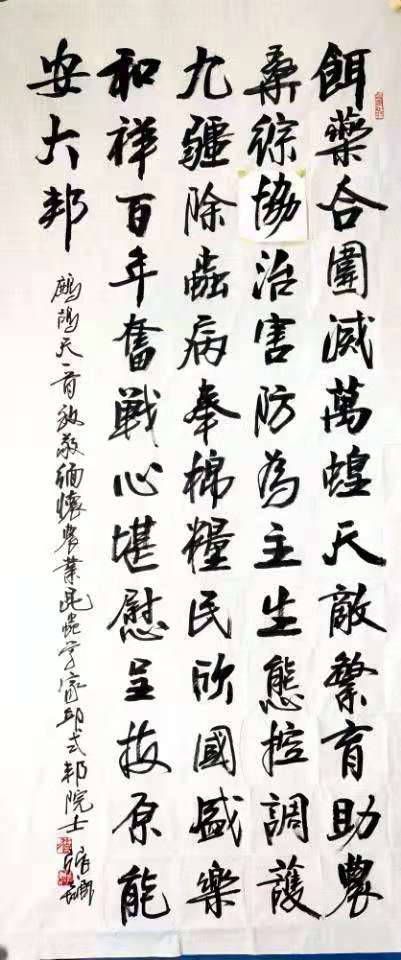 餌藥合圍滅萬蝗天敵繁育助農
桑綜協治害防為主生態控調護
九疆除蟲病奉棉糧民欣國盛樂
和祥百年奮戰心堪慰呈技原能
安大邦
鷓鴣天一首致敬緬懷農業昆蟲學家邱式邦院士